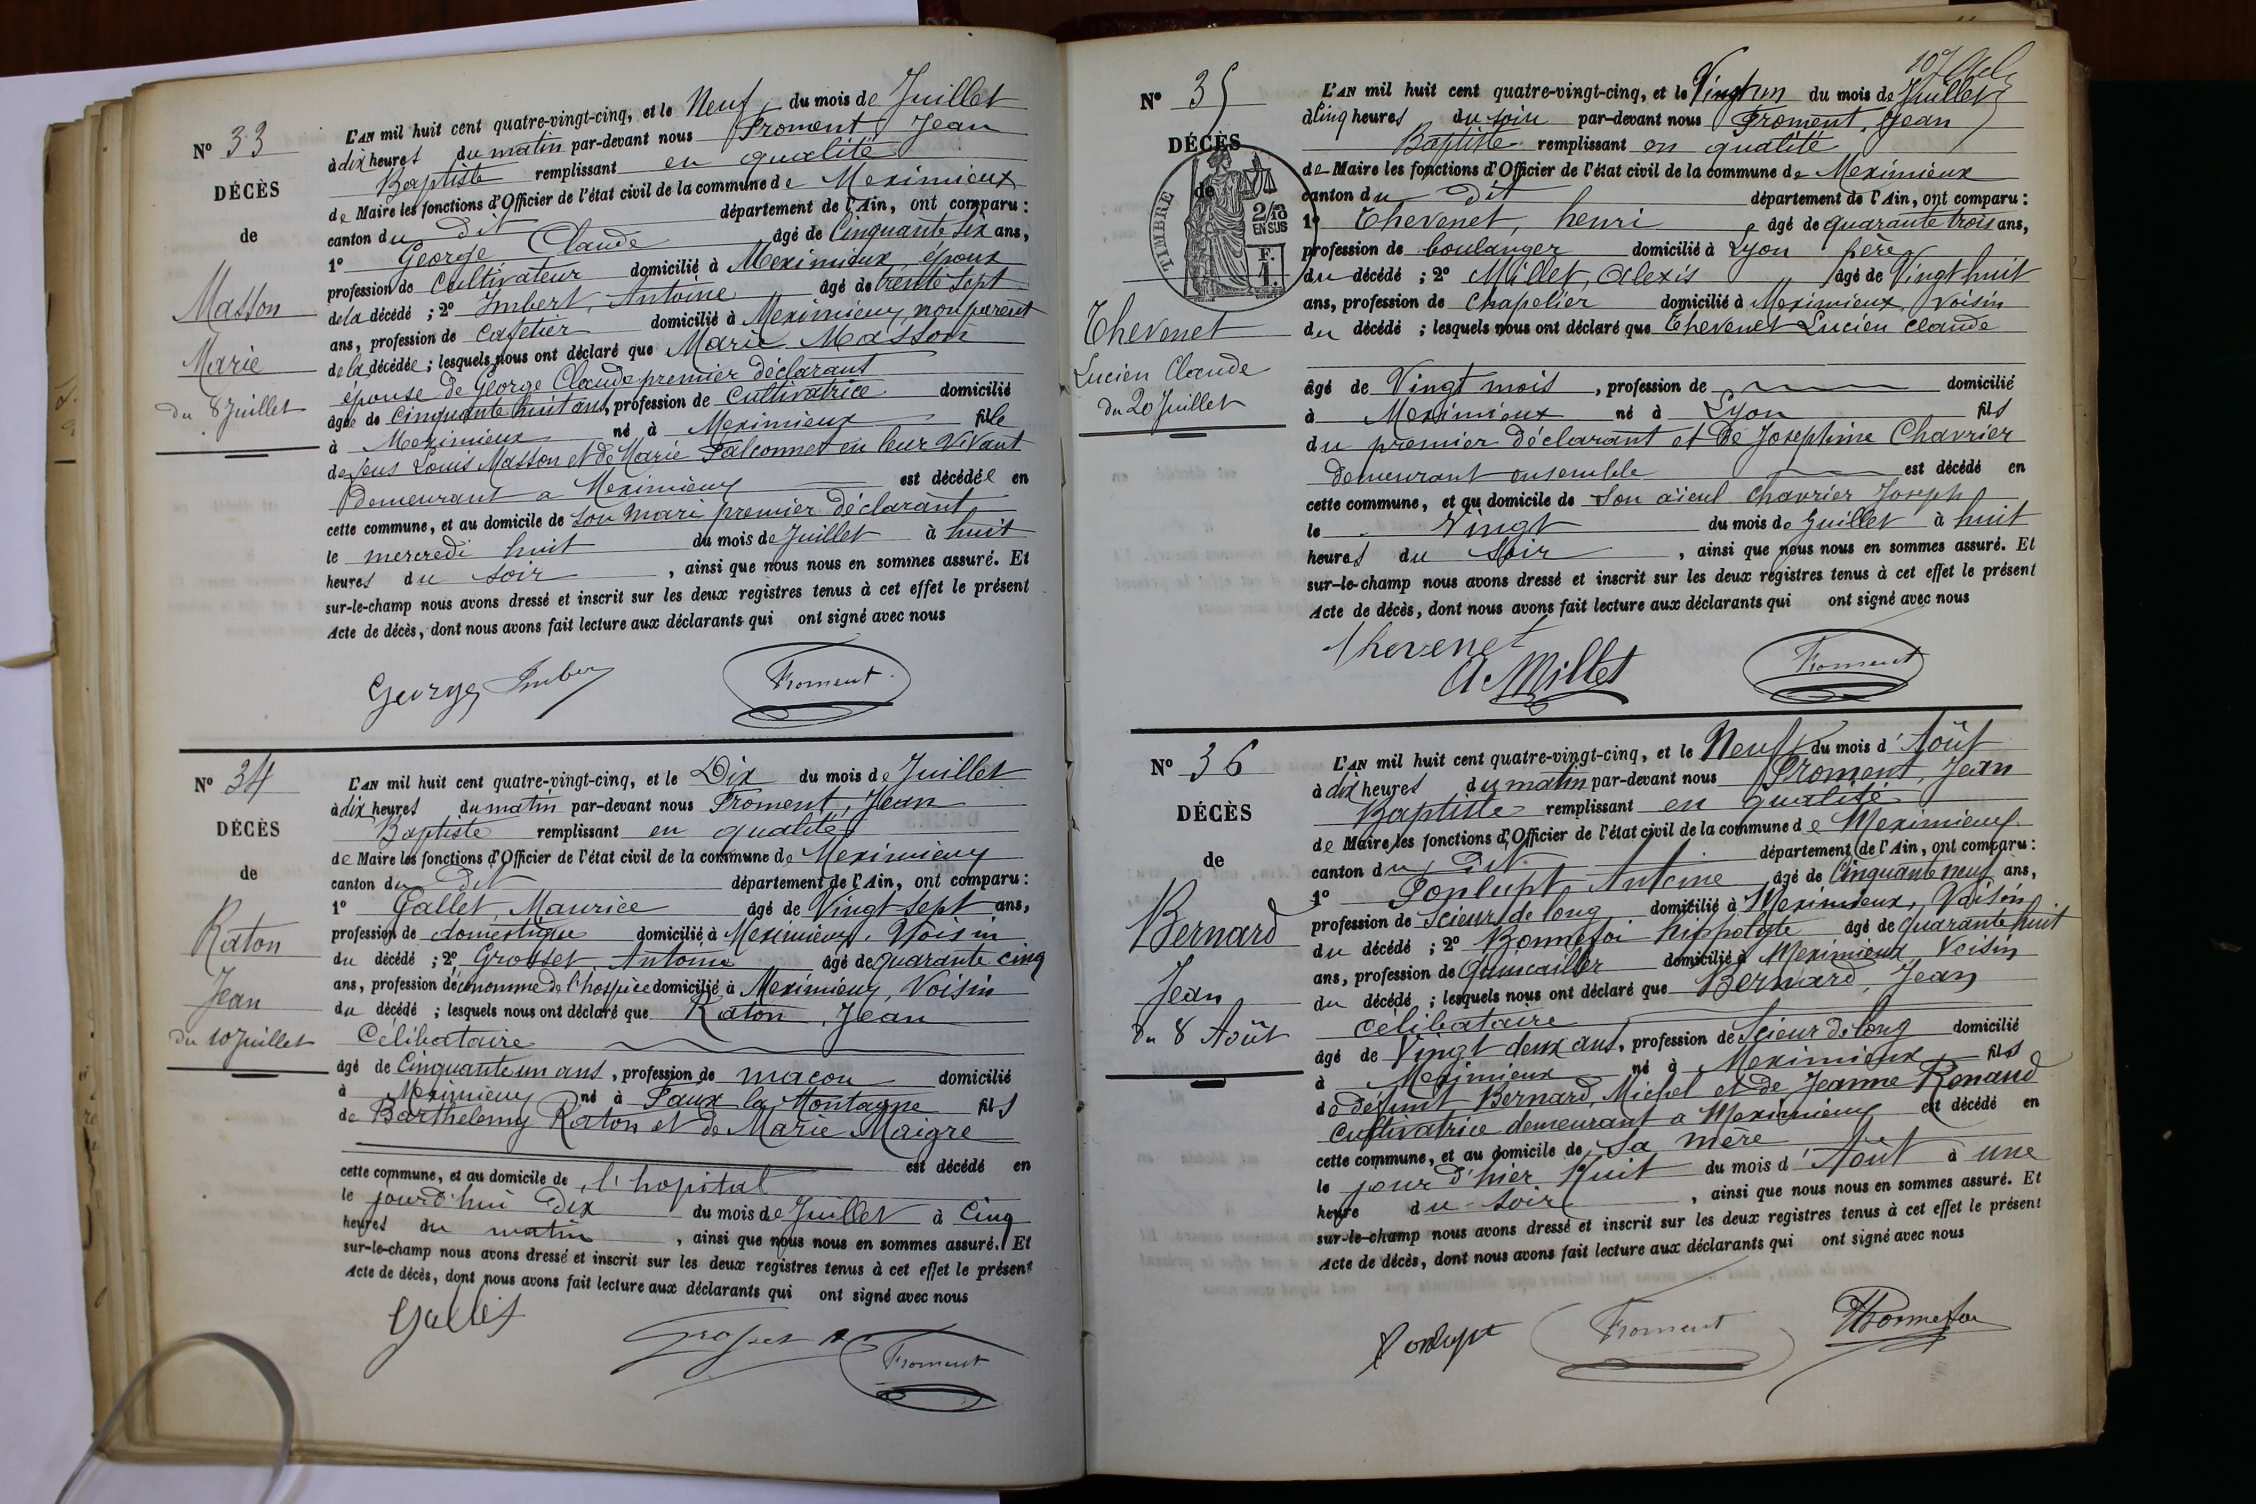 N° 33
DÉCÈS
de
Masson
Marie
du 8 Juillet
L'AN mil huit cent quatre-vingt-cinq, et le Neuf du mois de Juillet
à dix heures du matin par-devant nous Froment Jean
Baptiste remplissant en qualité
de Maire les fonctions d'Officier de l'état civil de la commune de Meximieux
canton du dit département de l'Ain, ont comparu :
1° George Claude âgé de Cinquante six ans,
profession de Cultivateur domicilié à Meximieux époux
de la décédé ; 2° Imbert, Antoine âgé de trente sept
ans, profession de Cafetier domicilié à Meximieux non parent
de la décédée ; lesquels nous ont déclaré que Marie Masson
épouse de George Claude premier déclarant
âgée de Cinquante huit ans, profession de Cultivatrice domicilié
à Meximieux né à Meximieux fille
de feus Louis Masson et de Marie Falconnet en leur vivant
demeurant a Meximieux est décédée en
cette commune, et au domicile de son mari premier déclarant
le mercredi huit du mois de Juillet à huit
heures du soir , ainsi que nous nous en sommes assuré. Et
sur-le-champ nous avons dressé et inscrit sur les deux registres tenus à cet effet le présent
Acte de décès, dont nous avons fait lecture aux déclarants qui ont signé avec nous
George Imber Froment
N° 34
DÉCÈS
de
Raton
Jean
du 10 Juillet
L'AN mil huit cent quatre-vingt-cinq, et le Dix du mois de Juillet
à dix heures du matin par-devant nous Froment, Jean
Baptiste remplissant en qualité
de Maire les fonctions d'Officier de l'état civil de la commune de Meximieux
canton du dit département de l'Ain, ont comparu :
1° Gallet, Maurice âgé de Vingt sept ans,
profession de domestique domicilié à Meximieux, Voisin
du décédé ; 2° Grosset Antoine âgé de quarante cinq
ans, profession d'économe de l'hospice domicilié à Meximieux, Voisin
du décédé ; lesquels nous ont déclaré que Raton, Jean
Célibataire
âgé de Cinquante un ans, profession de maçon domicilié
à Meximieux né à Faux la Montagne fils
de Barthelemy Raton et de Marie Maigre
est décédé en
cette commune, et au domicile de l'hopital
le jourd'hui Dix du mois de Juillet à Cinq
heures du matin , ainsi que nous nous en sommes assuré. Et
sur-le-champ nous avons dressé et inscrit sur les deux registres tenus à cet effet le présent
Acte de décès, dont nous avons fait lecture aux déclarants qui ont signé avec nous
Gallet
Grosset Froment
N° 35
DÉCÈS
de
TIMBRE
2/10
EN SUS
F.
1.
Thevenet
Lucien Claude
du 20 Juillet
L'AN mil huit cent quatre-vingt-cinq, et le Vingt un du mois de Juillet
à Cinq heures du soir par-devant nous Froment, Jean
Baptiste remplissant en qualité
de Maire les fonctions d'Officier de l'état civil de la commune de Meximieux
canton du dit département de l'Ain, ont comparu :
1° Thevenet, henri âgé de quarante trois ans,
profession de boulanger domicilié à Lyon père
du décédé ; 2° Millet, Alexis âgé de Vingt huit
ans, profession de Chapelier domicilié à Meximieux, Voisin
du décédé ; lesquels nous ont déclaré que Thevenet Lucien Claude
âgé de Vingt mois , profession de domicilié
à Meximieux né à Lyon fils
du premier déclarant et de Josephine Chavrier
demeurant ensemble est décédé en
cette commune, et au domicile de son aïeul Chavrier Joseph
le Vingt du mois de Juillet à huit
heures du soir , ainsi que nous nous en sommes assuré. Et
sur-le-champ nous avons dressé et inscrit sur les deux registres tenus à cet effet le présent
Acte de décès, dont nous avons fait lecture aux déclarants qui ont signé avec nous
Thevenet
A Millet Froment
N° 36
DÉCÈS
de
Bernard
Jean
du 8 Août
L'AN mil huit cent quatre-vingt-cinq, et le Neuf du mois d'Août
à dix heures du matin par-devant nous Froment, Jean
Baptiste remplissant en qualité
de Maire les fonctions d'Officier de l'état civil de la commune de Meximieux
canton du dit département de l'Ain, ont comparu :
1° Ponlupt Antoine âgé de Cinquante neuf ans,
profession de Scieur de long domicilié à Meximieux, Voisin
du décédé ; 2° Bonnefoi hippolyte âgé de quarante huit
ans, profession de Quincailler domicilié à Meximieux Voisin
du décédé ; lesquels nous ont déclaré que Bernard, Jean
Célibataire
âgé de Vingt deux ans, profession de Scieur de long domicilié
à Meximieux né à Meximieux fils
de défunt Bernard, Michel et de Jeanne Renaud
Cultivatrice demeurant a Meximieux est décédé en
cette commune, et au domicile de Sa mère
le jour d'hier Huit du mois d'Août à une
heure du soir , ainsi que nous nous en sommes assuré. Et
sur-le-champ nous avons dressé et inscrit sur les deux registres tenus à cet effet le présent
Acte de décès, dont nous avons fait lecture aux déclarants qui ont signé avec nous
Ponlupt Froment HBonnefoi